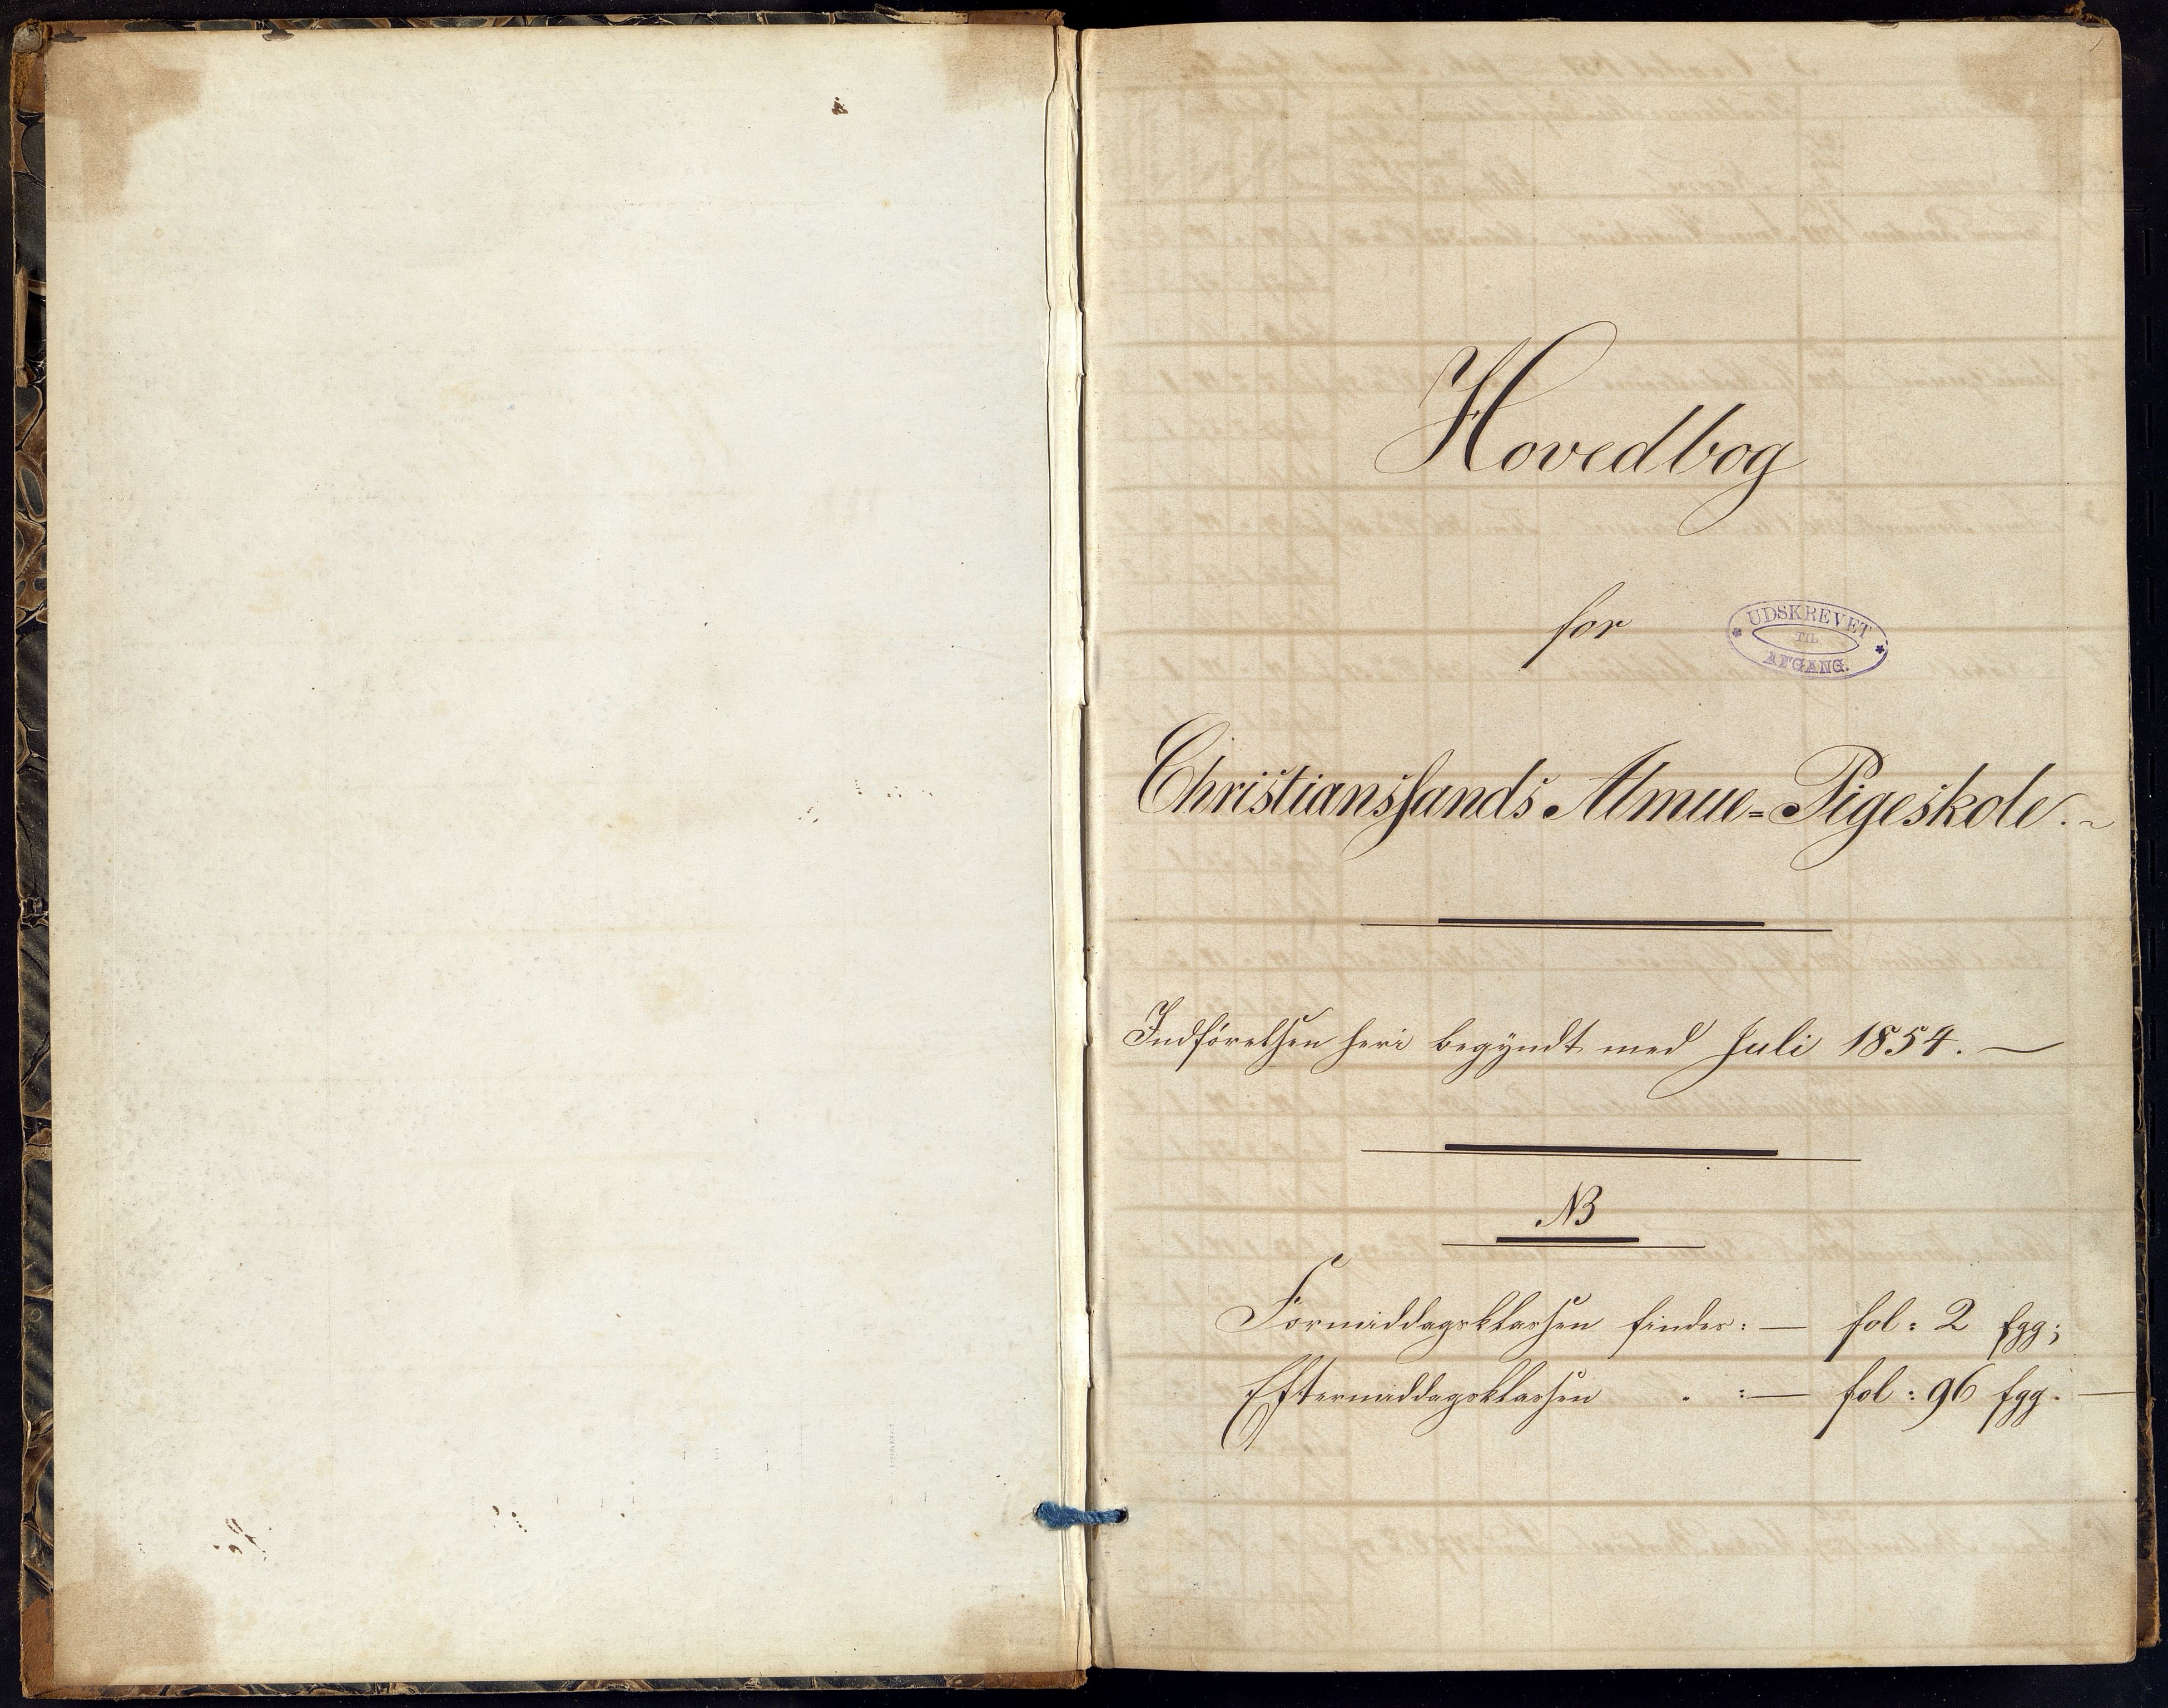 Hovedbog
for
UDSKREVET
TIL
AFGANG.
Christianssands Almue=Pigeskole.
Indførelsen heri begyndt med Juli 1854. —
NB
Formiddagsklassen findes: — fol: 2 fgg;
Eftermiddagsklassen " :— fol: 96 fgg. —